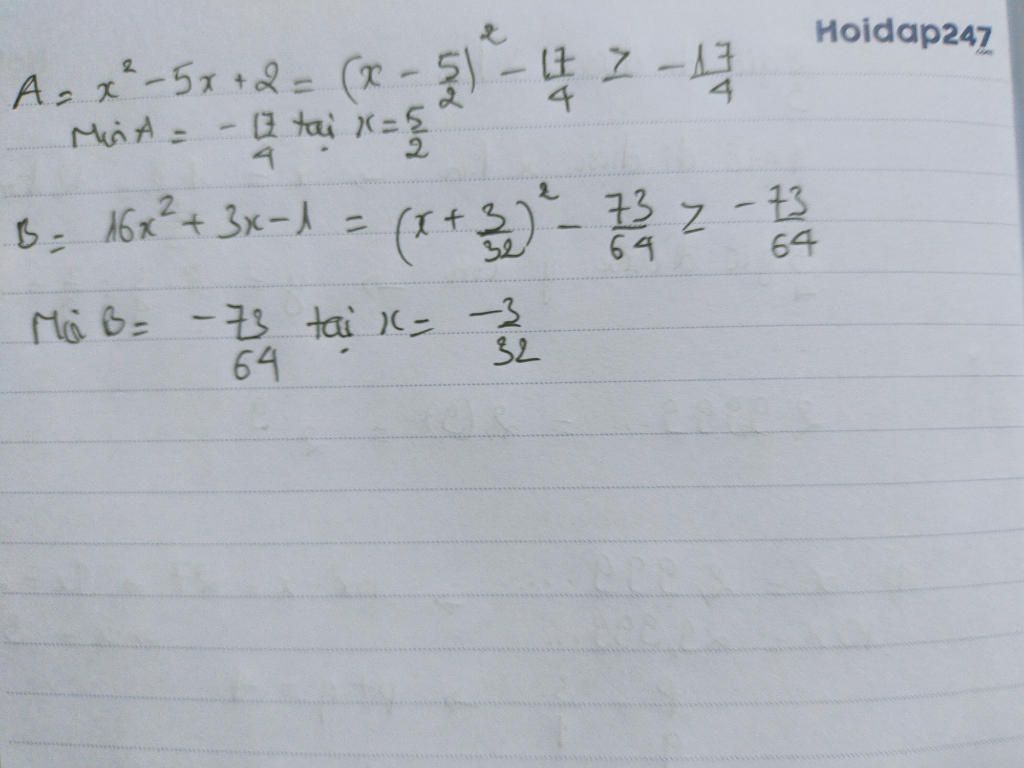 Hoidap247
.com
A = x² - 5x + 2 = (x - 5/2)² - 17/4 ≥ -17/4
Min A = -17/4 tại x = 5/2
B = 16x² + 3x - 1 = (x + 3/32)² - 73/64 ≥ -73/64
Min B = -73/64 tại x = -3/32